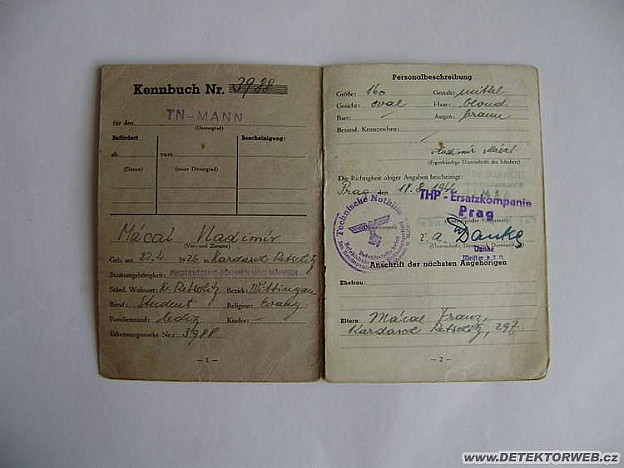 Kennbuch Nr. 3988
für den TN-MANN
(Dienstgrad)
Befördert
Bescheinigung:
ab
zum
(Datum)
(neuer Dienstgrad)
Mácal Vladimír
(Vor- und Zuname)
Geb. am 22.4.1926 in Kardasch Retschitz
Staatsangehörigkeit: PROTEKTORAT BÖHMEN UND MÄHREN
Ständ. Wohnort: K. Retschitz Bezirk: Wittingau
Beruf: Student Religion: evang
Familienstand: ledig Kinder: —
Erkennungsmarke Nr.: 3988
— 1 —
Personalbeschreibung
Größe: 160 Gestalt: mittel
Gesicht: oval Haar: blond
Bart: / Augen: braun
Besond. Kennzeichen: /
Vladimír Mácal
(Eigenhändige Unterschrift des Inhabers)
Die Richtigkeit obiger Angaben bescheinigt:
Prag, den 11.8.194
THP - Ersatzkompanie
Prag
Technische Nothilfe
Danke
Anschrift der nächsten Angehörigen
Ehefrau:
Eltern: Mácal Franz,
Kardasch Retschitz, 297.
— 2 —
www.DETEKTORWEB.cz